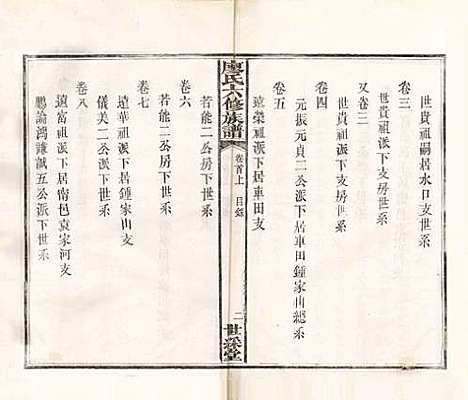 卷三
世貴祖嗣居水口支世系
世貴祖派下支房世系
又卷三
世貴祖派下支世系
卷四
元振元貞二公派下居車田鍾家曲總系
卷五
遠榮祖派下居車田支
廖氏六修族譜
卷首上 目錄
二
世綵堂
若能二公房下世系
卷六
若能二公房下世系
卷七
遠華祖派下居鍾家山支
儀美二公派下世系
卷八
遠富祖派下居甯邑袁家河支
鵬論鴻謙誠五公派下世系